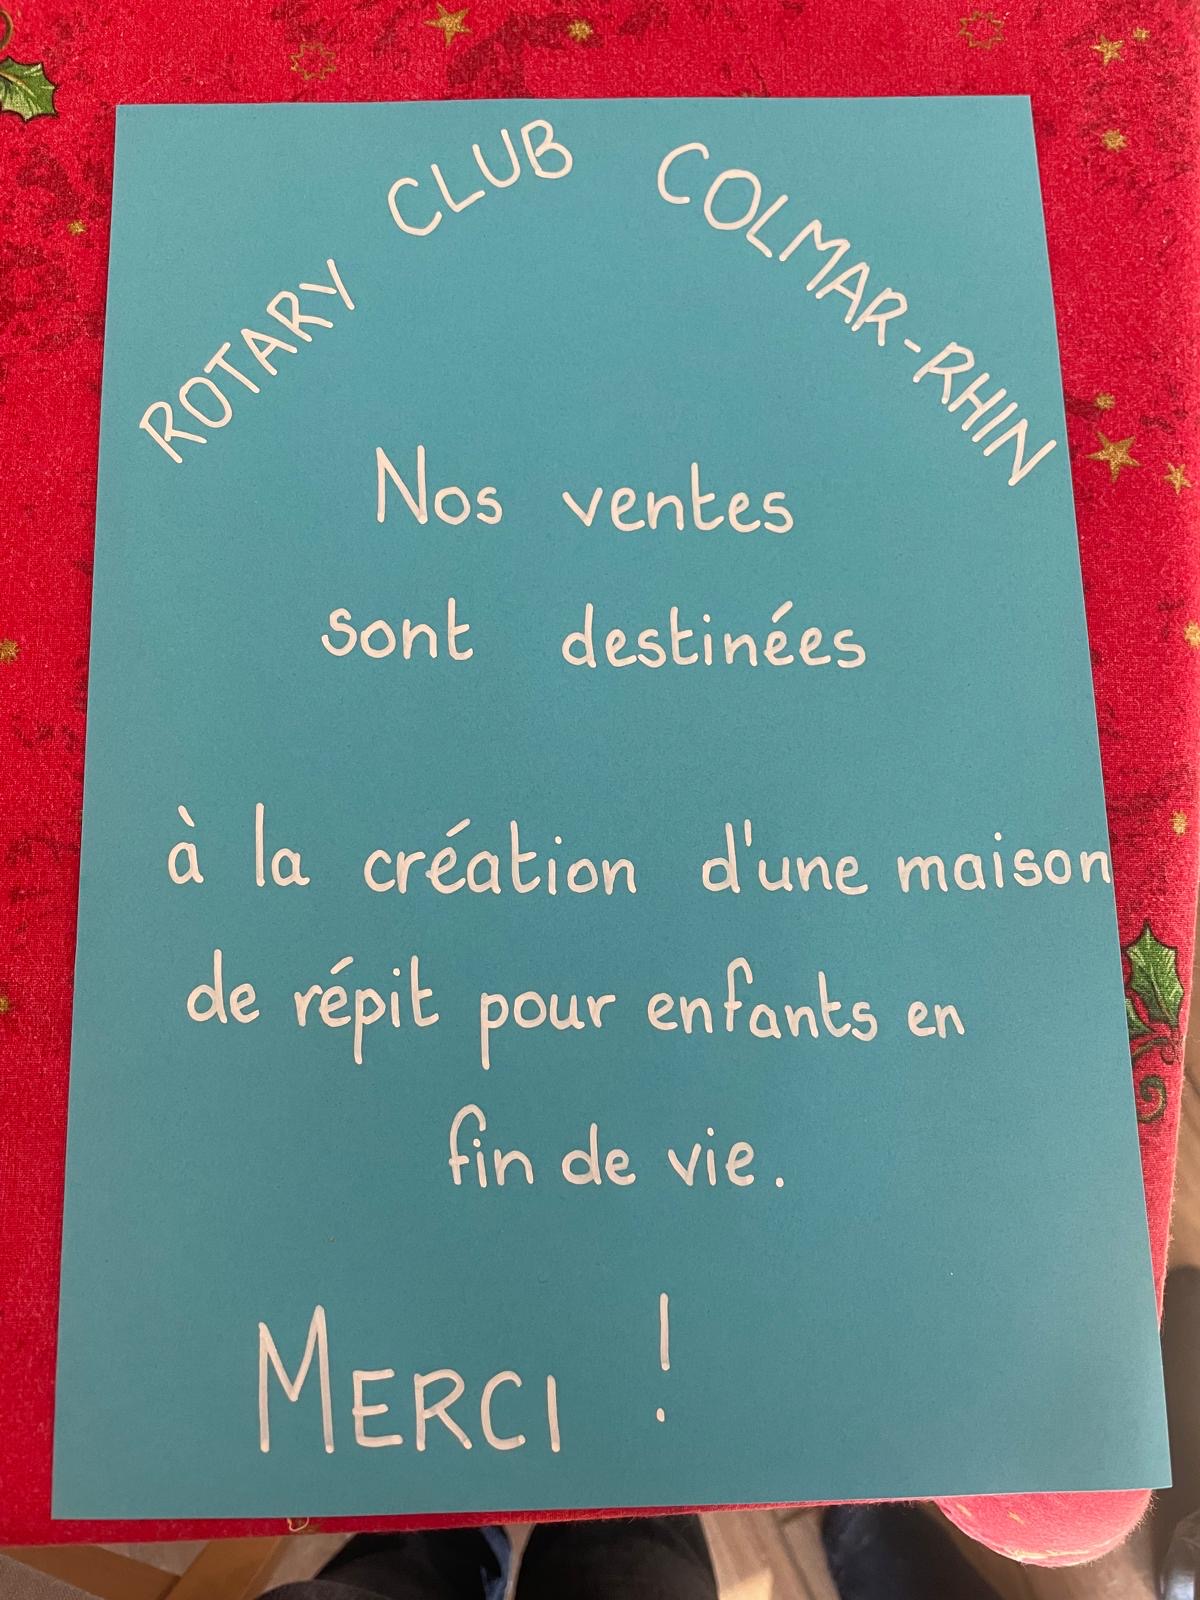 ROTARY CLUB COLMAR-RHIN
Nos ventes
sont destinées
à la création d'une maison
de répit pour enfants en
fin de vie.
MERCI !